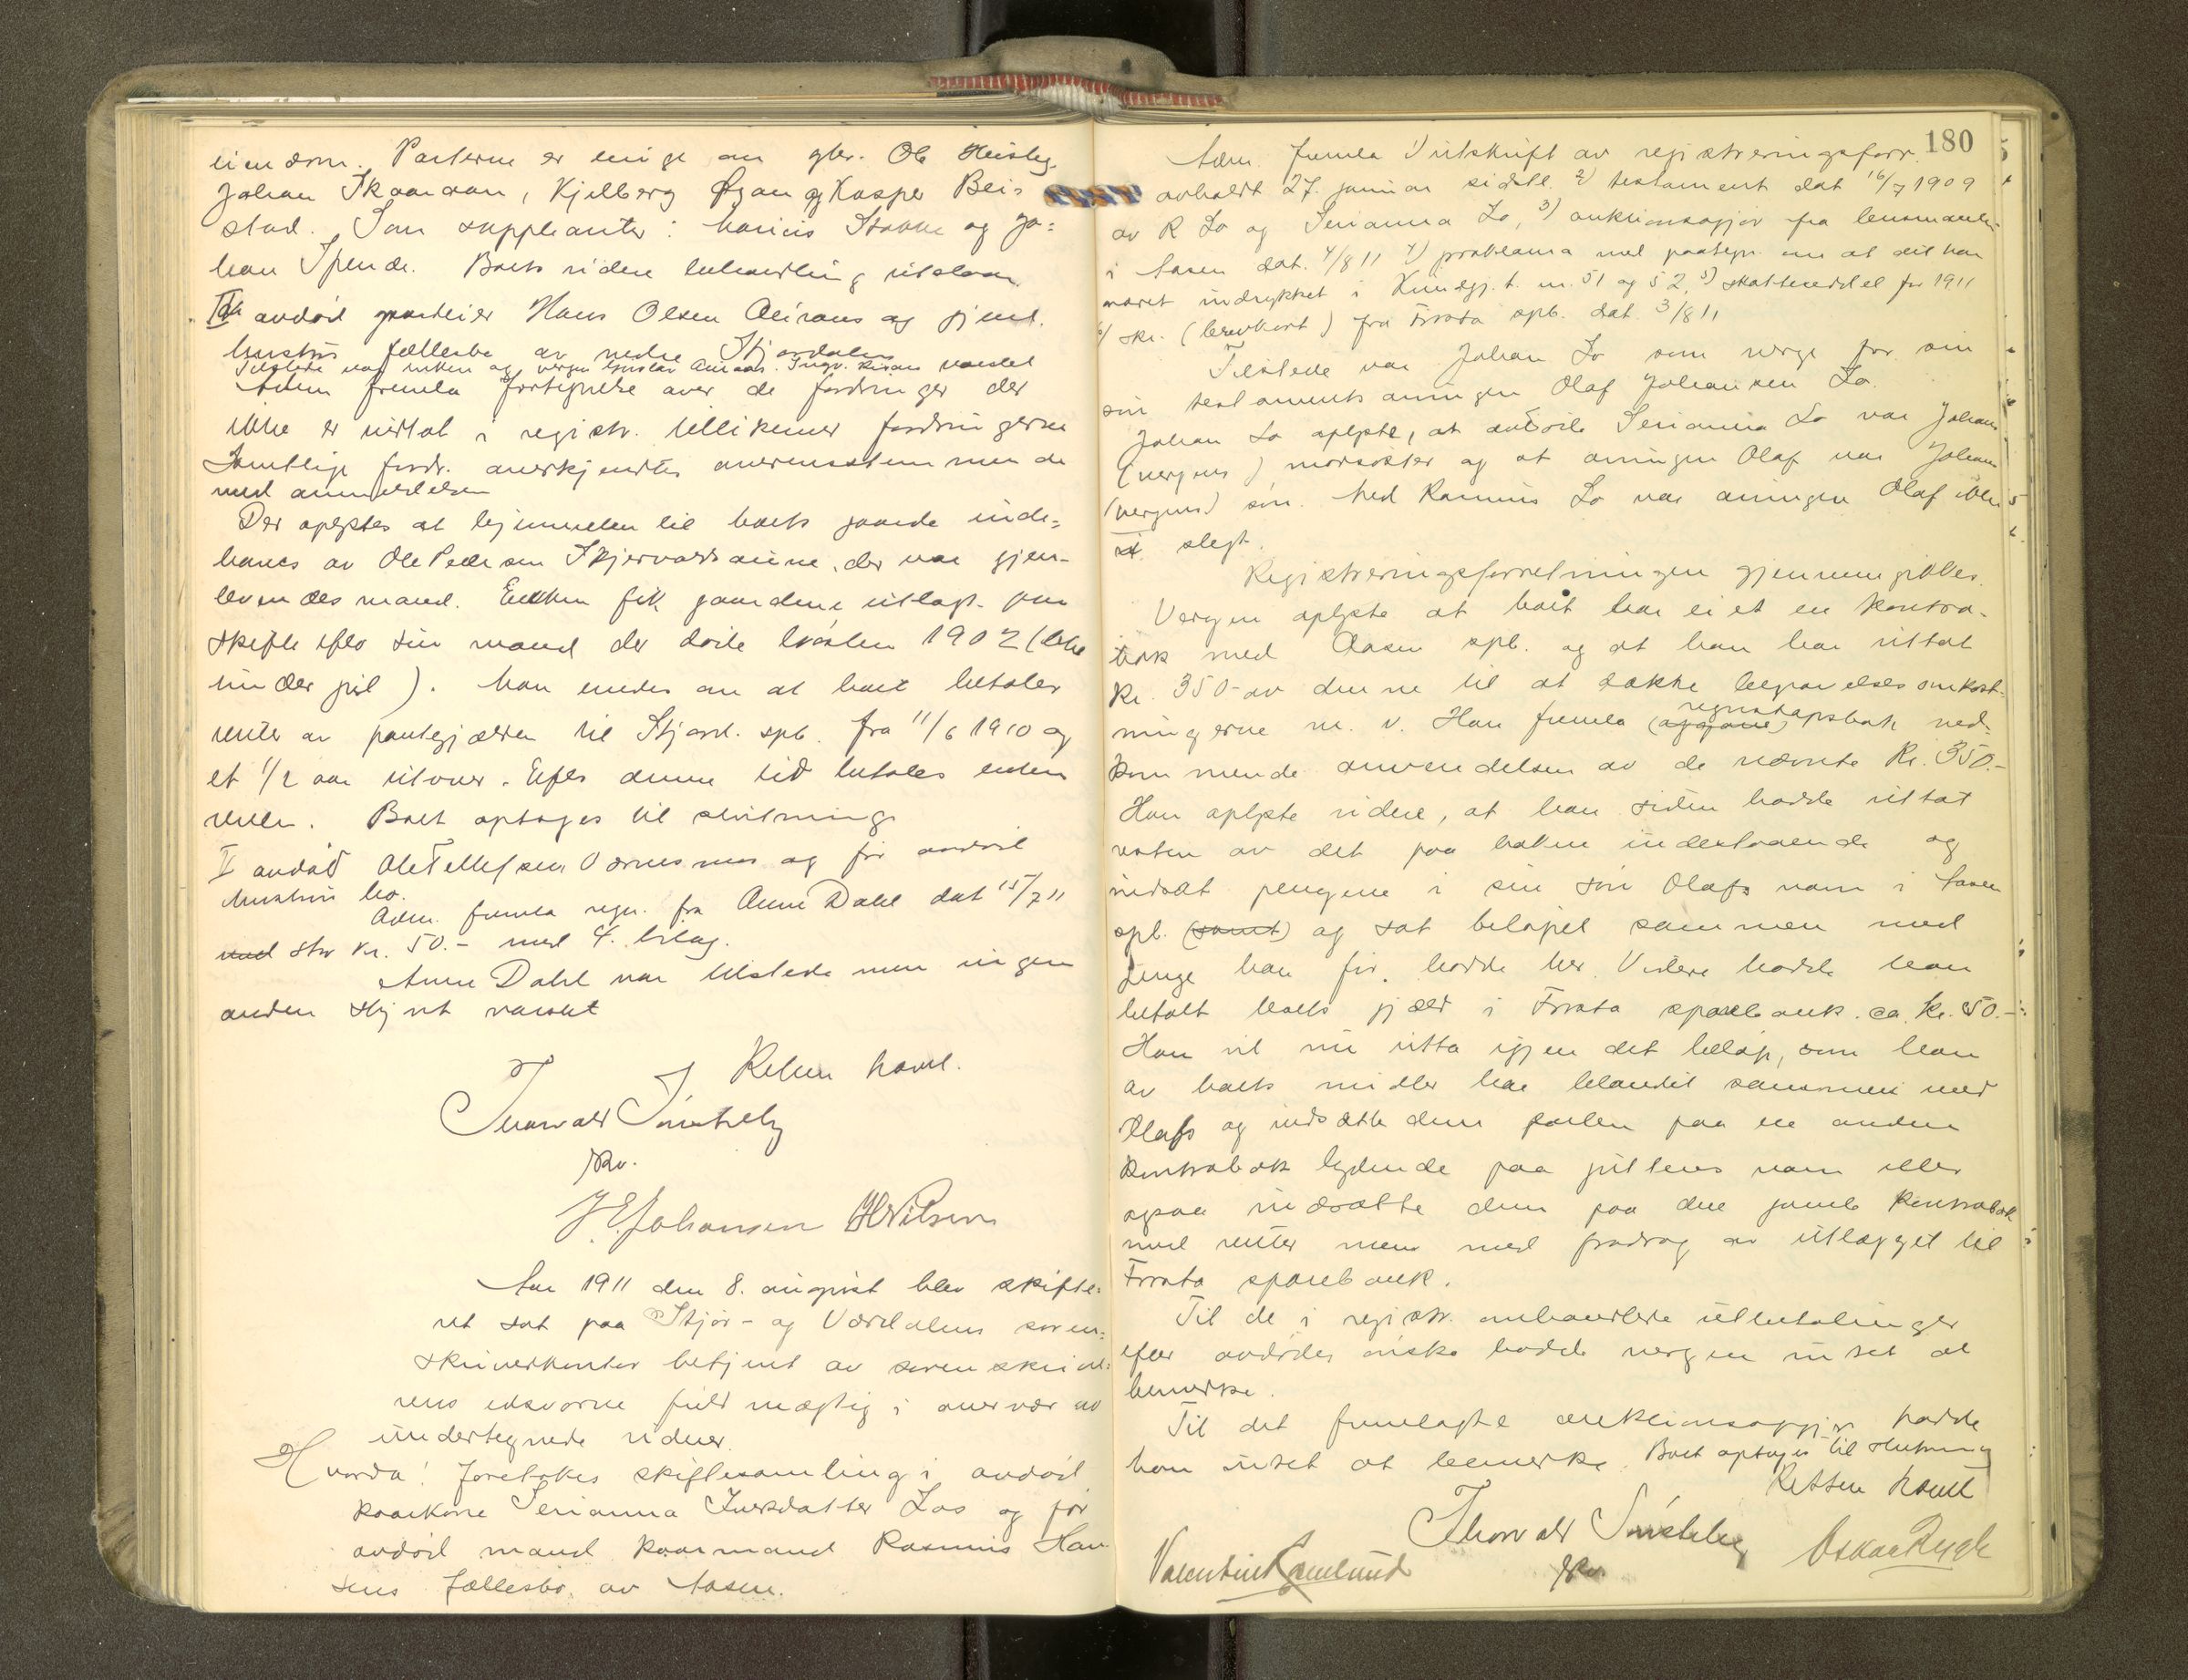 eiendom. Parterne er enige om gbr. Ole Heisteg
Johan Skaanaan, Kjelberg Øyan og Kasper Beis
stad. Som suppleanter: Marius Stokke og Jo=
han Spende. Boets videre behandling utstaar.
avdød gaardeier Hans Olsen Aunaas og gjenl.
hustrus fællesbo av nedre Stjørdalen
Tilstede var enken og vergen Gustav Aunaas. varslet
Adm fremla fortegnelse over de fordringer der
ikke er indtat i registr. tillikemed fordringerne
Samtlige fordr. anerkjendtes overensstemmende
med anmeldelsen
Der oplystes at hjemmelen til boets gaard inde=
haves av Ole Pedersen Skjervoldsaune, der var gjen-
levendes mand. Enken fik gaarden utlagt paa
skifte efter sin mand der døde høsten 1902 (ikke
under jul). Man enedes om at boet betaler
renter av pantegjælden til Stjørd. spb. fra 11/6 1910 og
et 1/2 aar utover. Efter denne tid betales enken
renten. Boet optages til slutning.
II avdød Ole Tellefsen Værnesmo og før avdød
hustrus bo.
Adm. fremla regn. fra Anne Dahl dat 15/7 11
med stor kr. 50.- med 4. bilag.
Anne Dahl var tilstede men ingen
anden skjønt varslet
Retten hævet.
Thorvald Smistely
fkv.
J. E. Johansen H Nilsen
Aar 1911 den 8. august blev skifte=
ret sat paa Stjør- og Værdalens soren=
skriverkontor betjent av sorenskrive=
rens edsvorne fuldmægtig i overvær av
undertegnede vidner.
Hvorda! Foretokes skiftesamling i avdød
kaarkone Serianna Iversdatter Los og før
avdød mand kaarmand Rasmus Han
sens fællesbo. av Aasen.
180
Adm. fremla 1) utskrift av registreringsforr.
avholdt 27. januar sidstl. 2) testament dat 16/7 1909
av R Lo og Serianna Lo, 3) auktionsopgjør fra lensmanden
i Aasen dat. 4/8 11 4) proklama med paategn. om at det har
været indrykket i Kundgj. t. nr. 51 og 52, 5) skatteseddel for 1911
6) skr. (brevkort) fra Frosta spb. dat. 3/8 11
Tilstede var Johan Lo som verge for sin
søn testamentsarvingen Olaf Johansen Lo.
Johan Lo oplyste, at avdøde Serianna Lo var Johans
(vergens) morsøster og at arvingen Olaf var Johans
(vergens) søn. Med Rasmus Lo var arvingen Olaf ikke
i slegt.
Registreringsforretningen gjennemgikkes.
Vergen oplyste at boet har eiet en kontra-
bok med Aasen spb. og at han har uttat
kr. 350- av denne til at dække begravelsesomkost=
ningerne m. v. Han fremla (opgjøret) regnskapsbok ved=
kommende anvendelsen av de nævnte kr. 350.-
Han oplyste videre, at han siden hadde uttat
resten av det paa boken indestaaende og
indsat pengene i sin søn Olafs navn i Aasen
spb. (samt) og sat beløpet sammen med
penge han før hadde her. Videre hadde han
betalt boets gjæld i Frosta sparebank ca. kr. 50.-
Han vil nu utta igjen det beløp, som han
av boets midler har blandet sammen med
Olafs og indsætte dem paa en anden
kontrabok lydende paa guttens navn eller
ogsaa indsætte dem paa den gamle kontrabok
med renter men med fradrag av utlægget til
Frosta sparebank.
Til de i registr. omhandlede utbetalinger
efter avdødes ønske hadde vergen intet at
bemerke.
Til det fremlagte auktionsopgjør hadde
han intet at bemerke. Boet optages til slutning
Retten hævet
Thorvald Smistely
fkv.
Valentin Ramlund
Oskar Rygh